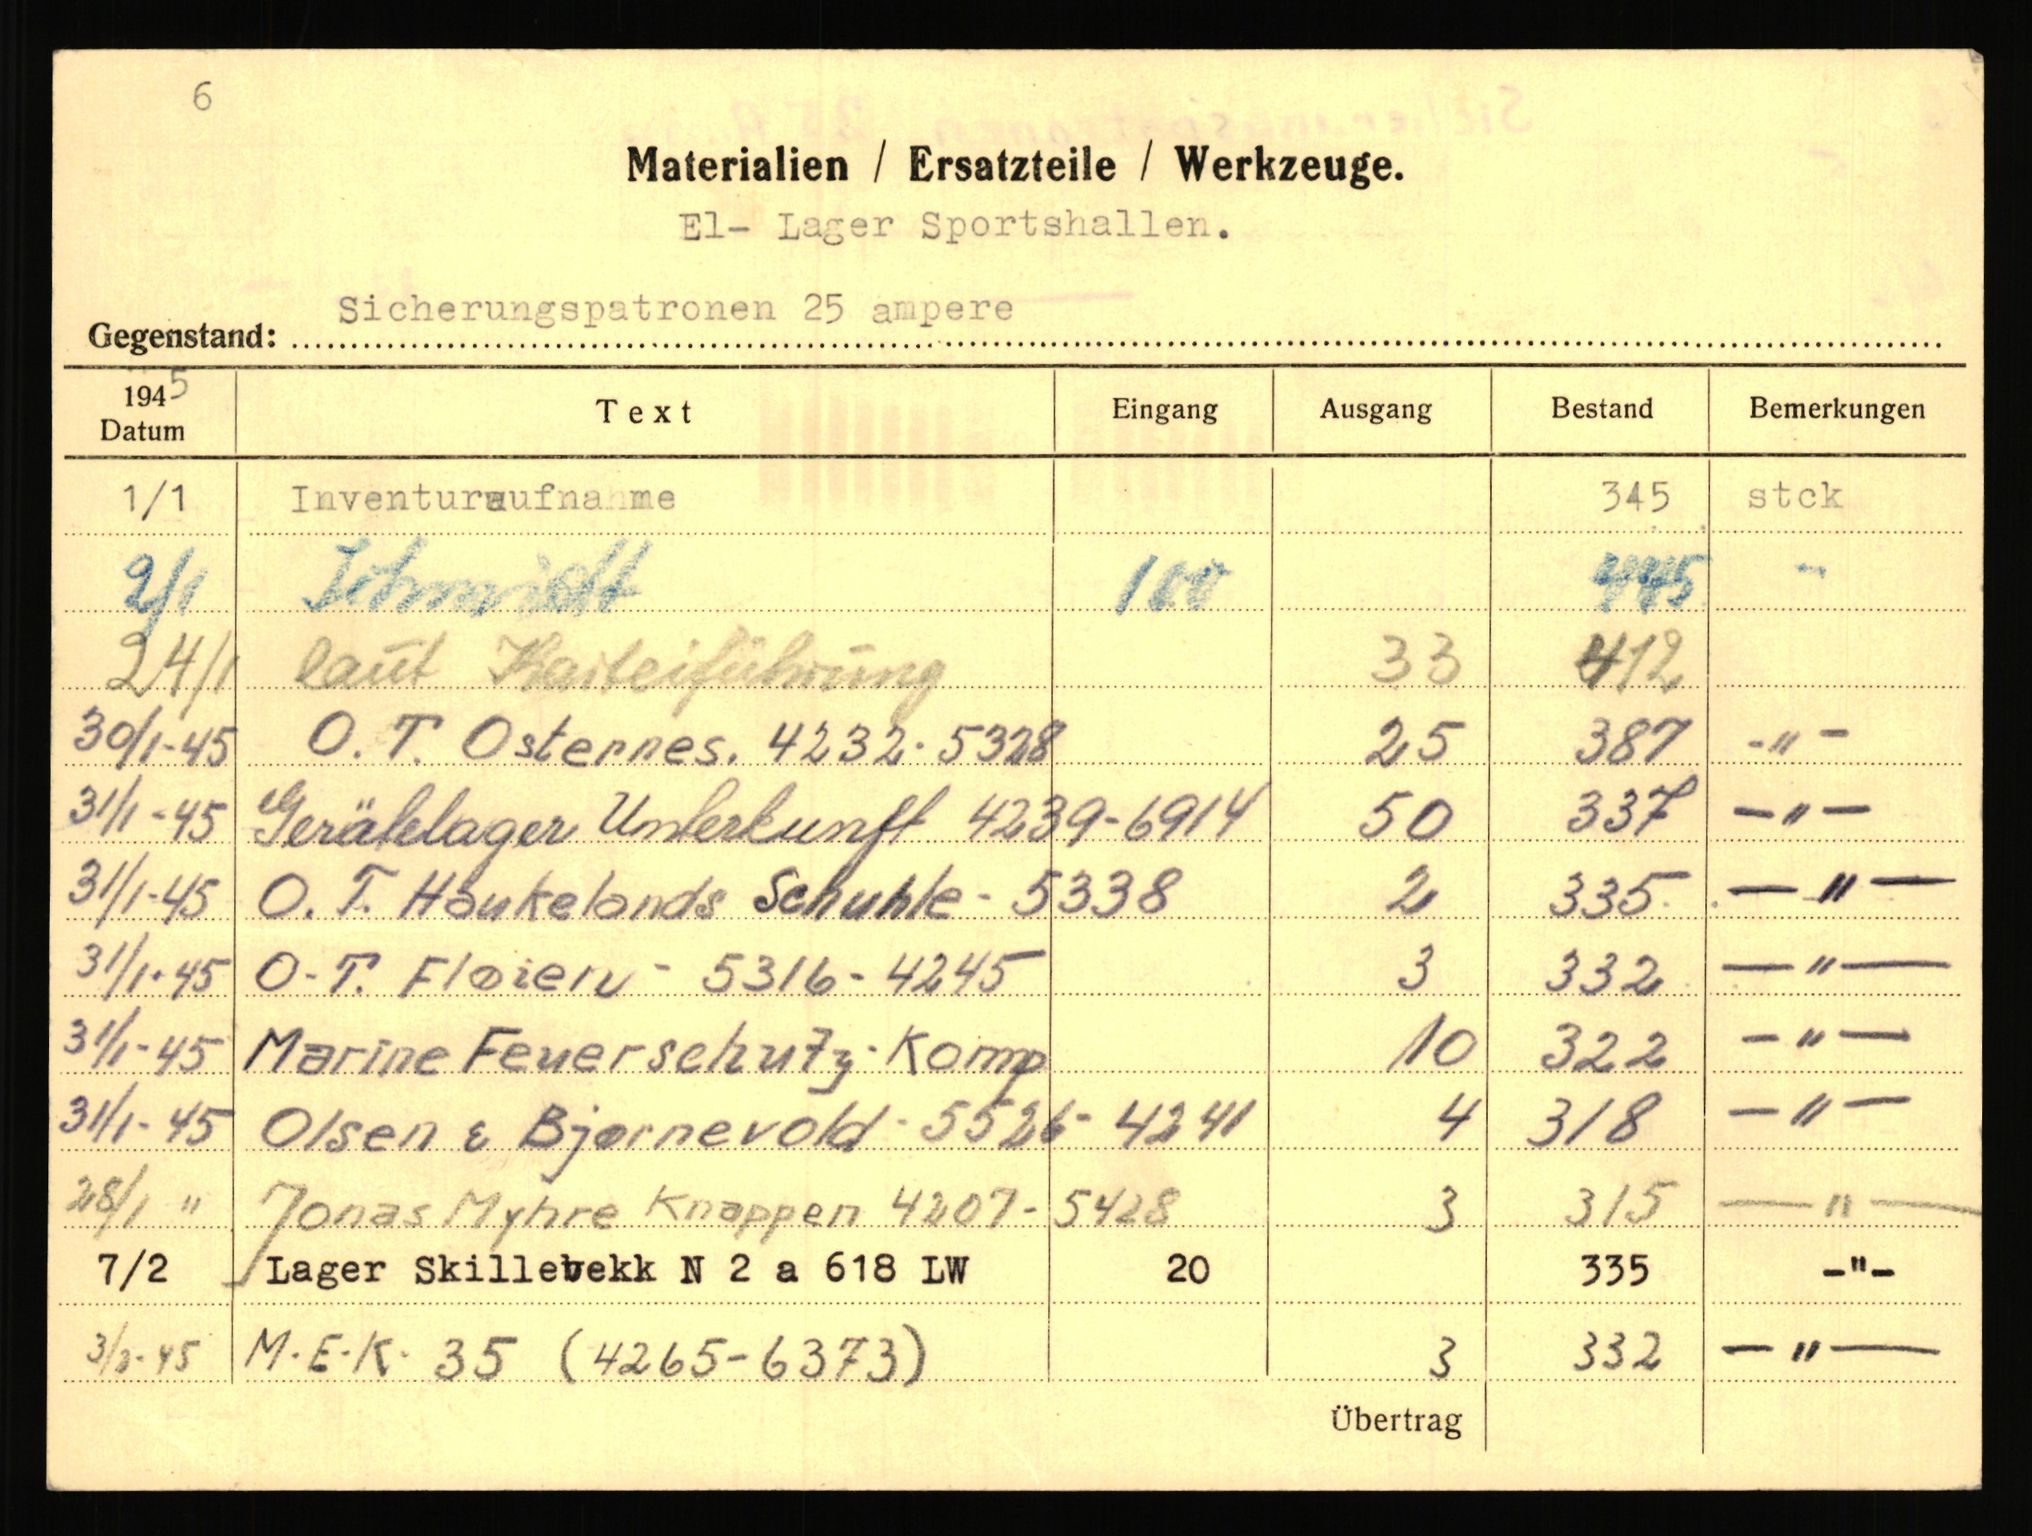 6
Materialien / Ersatzteile / Werkzeuge.
El- Lager Sportshallen.
Sicherungspatronen 25 ampere
Gegenstand:
1945 Datum Text Eingang Ausgang Bestand Bemerkungen
1/1 Inventuraufnahme 345 stck
2/1 Schmidt 100 445 "
24/1 laut Karteiführung 33 412
30/1-45 O. T. Osternes. 4232-5328 25 387 -"-
31/1-45 Gerätelager Unterkunft 4239-6914 50 337 -"-
31/1-45 O. T. Haukelands Schuhle - 5338 2 335 -"-
31/1-45 O-T. Fløien - 5316-4245 3 332 -"-
31/1-45 Marine Feuerschutz-Komp 10 322 -"-
31/1-45 Olsen & Bjørnevold - 5526-4241 4 318 -"-
28/1 " Jonas Myhre Knappen 4207-5428 3 315 -"-
7/2 Lager Skillebekk N 2 a 618 LW 20 335 -"-
3/2-45 M.E.K. 35 (4265-6373) 3 332 -"-
Übertrag